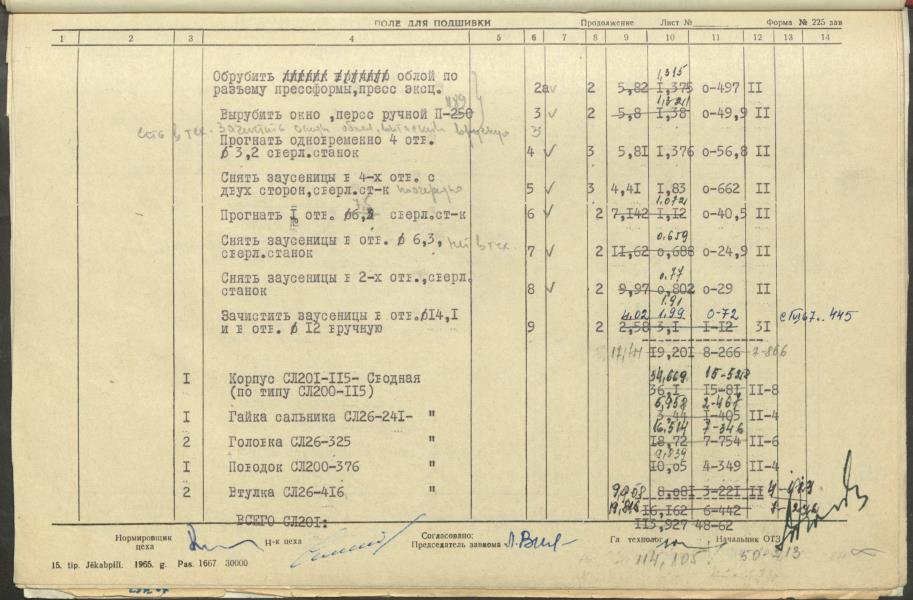 ПОЛЕ ДЛЯ ПОДШИВКИ Продолжение Лист № Форма № 225 зав
1 2 3 4 5 6 7 8 9 10 11 12 13 14
1,315
Обрубить облой по
разъему прессформы,пресс эксц. 2а 2 5,82 1,375 0-497 II
Вырубить окно ,перес ручной П-250 3 2 5,8 1,38 0-49,9 II
Прогнать одновременно 4 отв.
ø 3,2 сверл.станок 4 3 5,81 1,376 0-56,8 II
Снять заусеницы в 4-х отв. с
двух сторон,сверл.ст-к поочередно 5 3 4,41 1,83 0-662 II
1.072
Прогнать I отв. ø6,2 сверл.ст-к 6 2 7,142 1,12 0-40,5 II
0.659
Снять заусеницы в отв. ø 6,3, нет в тех.
сверл.станок 7 2 11,62 0,688 0-24,9 II
0.77
Снять заусеницы в 2-х отв.,сверл.
станок 8 2 9,97 0,802 0-29 II
1.91
Зачистить заусеницы в отв.ø14,1 4.02 1.99 0-72
и в отв. ø 12 вручную 9 2 2,58 3,1 1-12 31
19,201 8-266
34,669 15-528
I Корпус СЛ201-115- Сводная
(по типу СЛ200-115) 36,1 15-81 II-8
6,958 2-467
I Гайка сальника СЛ26-241- " 3,44 1-405 II-4
16.514 7-346
2 Головка СЛ26-325 " 18,72 7-754 II-6
9.839
I Поводок СЛ200-376 " 10,05 4-349 II-4
2 Втулка СЛ26-416 " 8,081 3-221 II
19,816 16,162 6-442
ВСЕГО СЛ201: 113,927 48-62
Нормировщик
цеха
Н-к цеха
Согласовано:
Председатель завкома
Гл технолог
Начальник ОТЗ
114,105. 50-213
15. tip. Jēkabpilī. 1965. g. Pas. 1667 30000